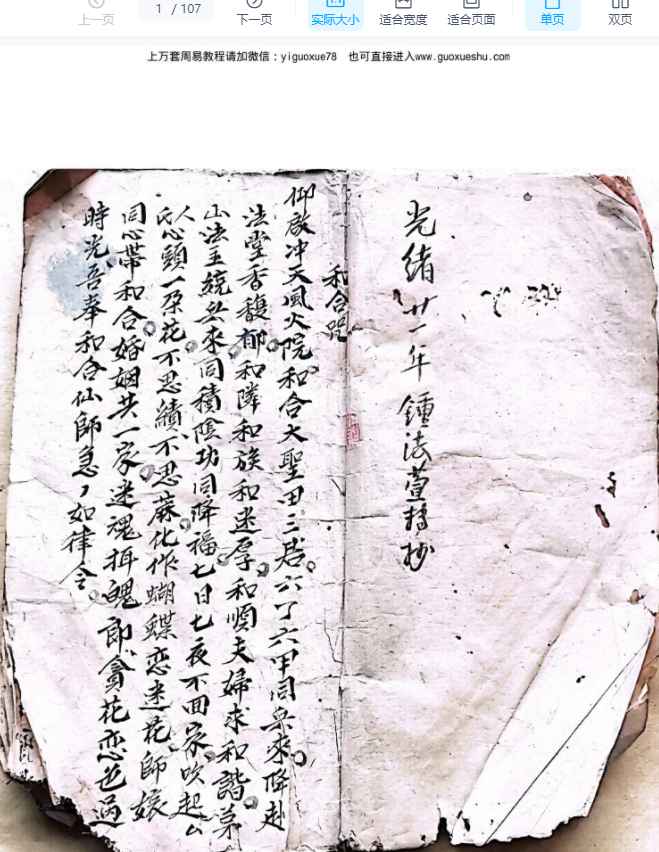 上一页
1 / 107
下一页
实际大小
适合宽度
适合页面
单页
双页
上万套周易教程请加微信：yiguoxue78 也可直接进入www.guoxueshu.com
光緒廿一年鍾法萱抄
和合咒
仰啟冲天風火院和合大聖田三君六丁六甲同兵來降赴
法堂香馥郁和隣和族和迷厚和順夫婦求和諧茅
山法主統兵來同積陰功同降福七日七夜不回家吹起
人心頭一朶花不思績不思蔴化作蝴蝶恋迷花師娘
同心帶和合婚姻共一家迷魂揖魄郎貪花恋色過
時光吾奉和合仙師急々如律令